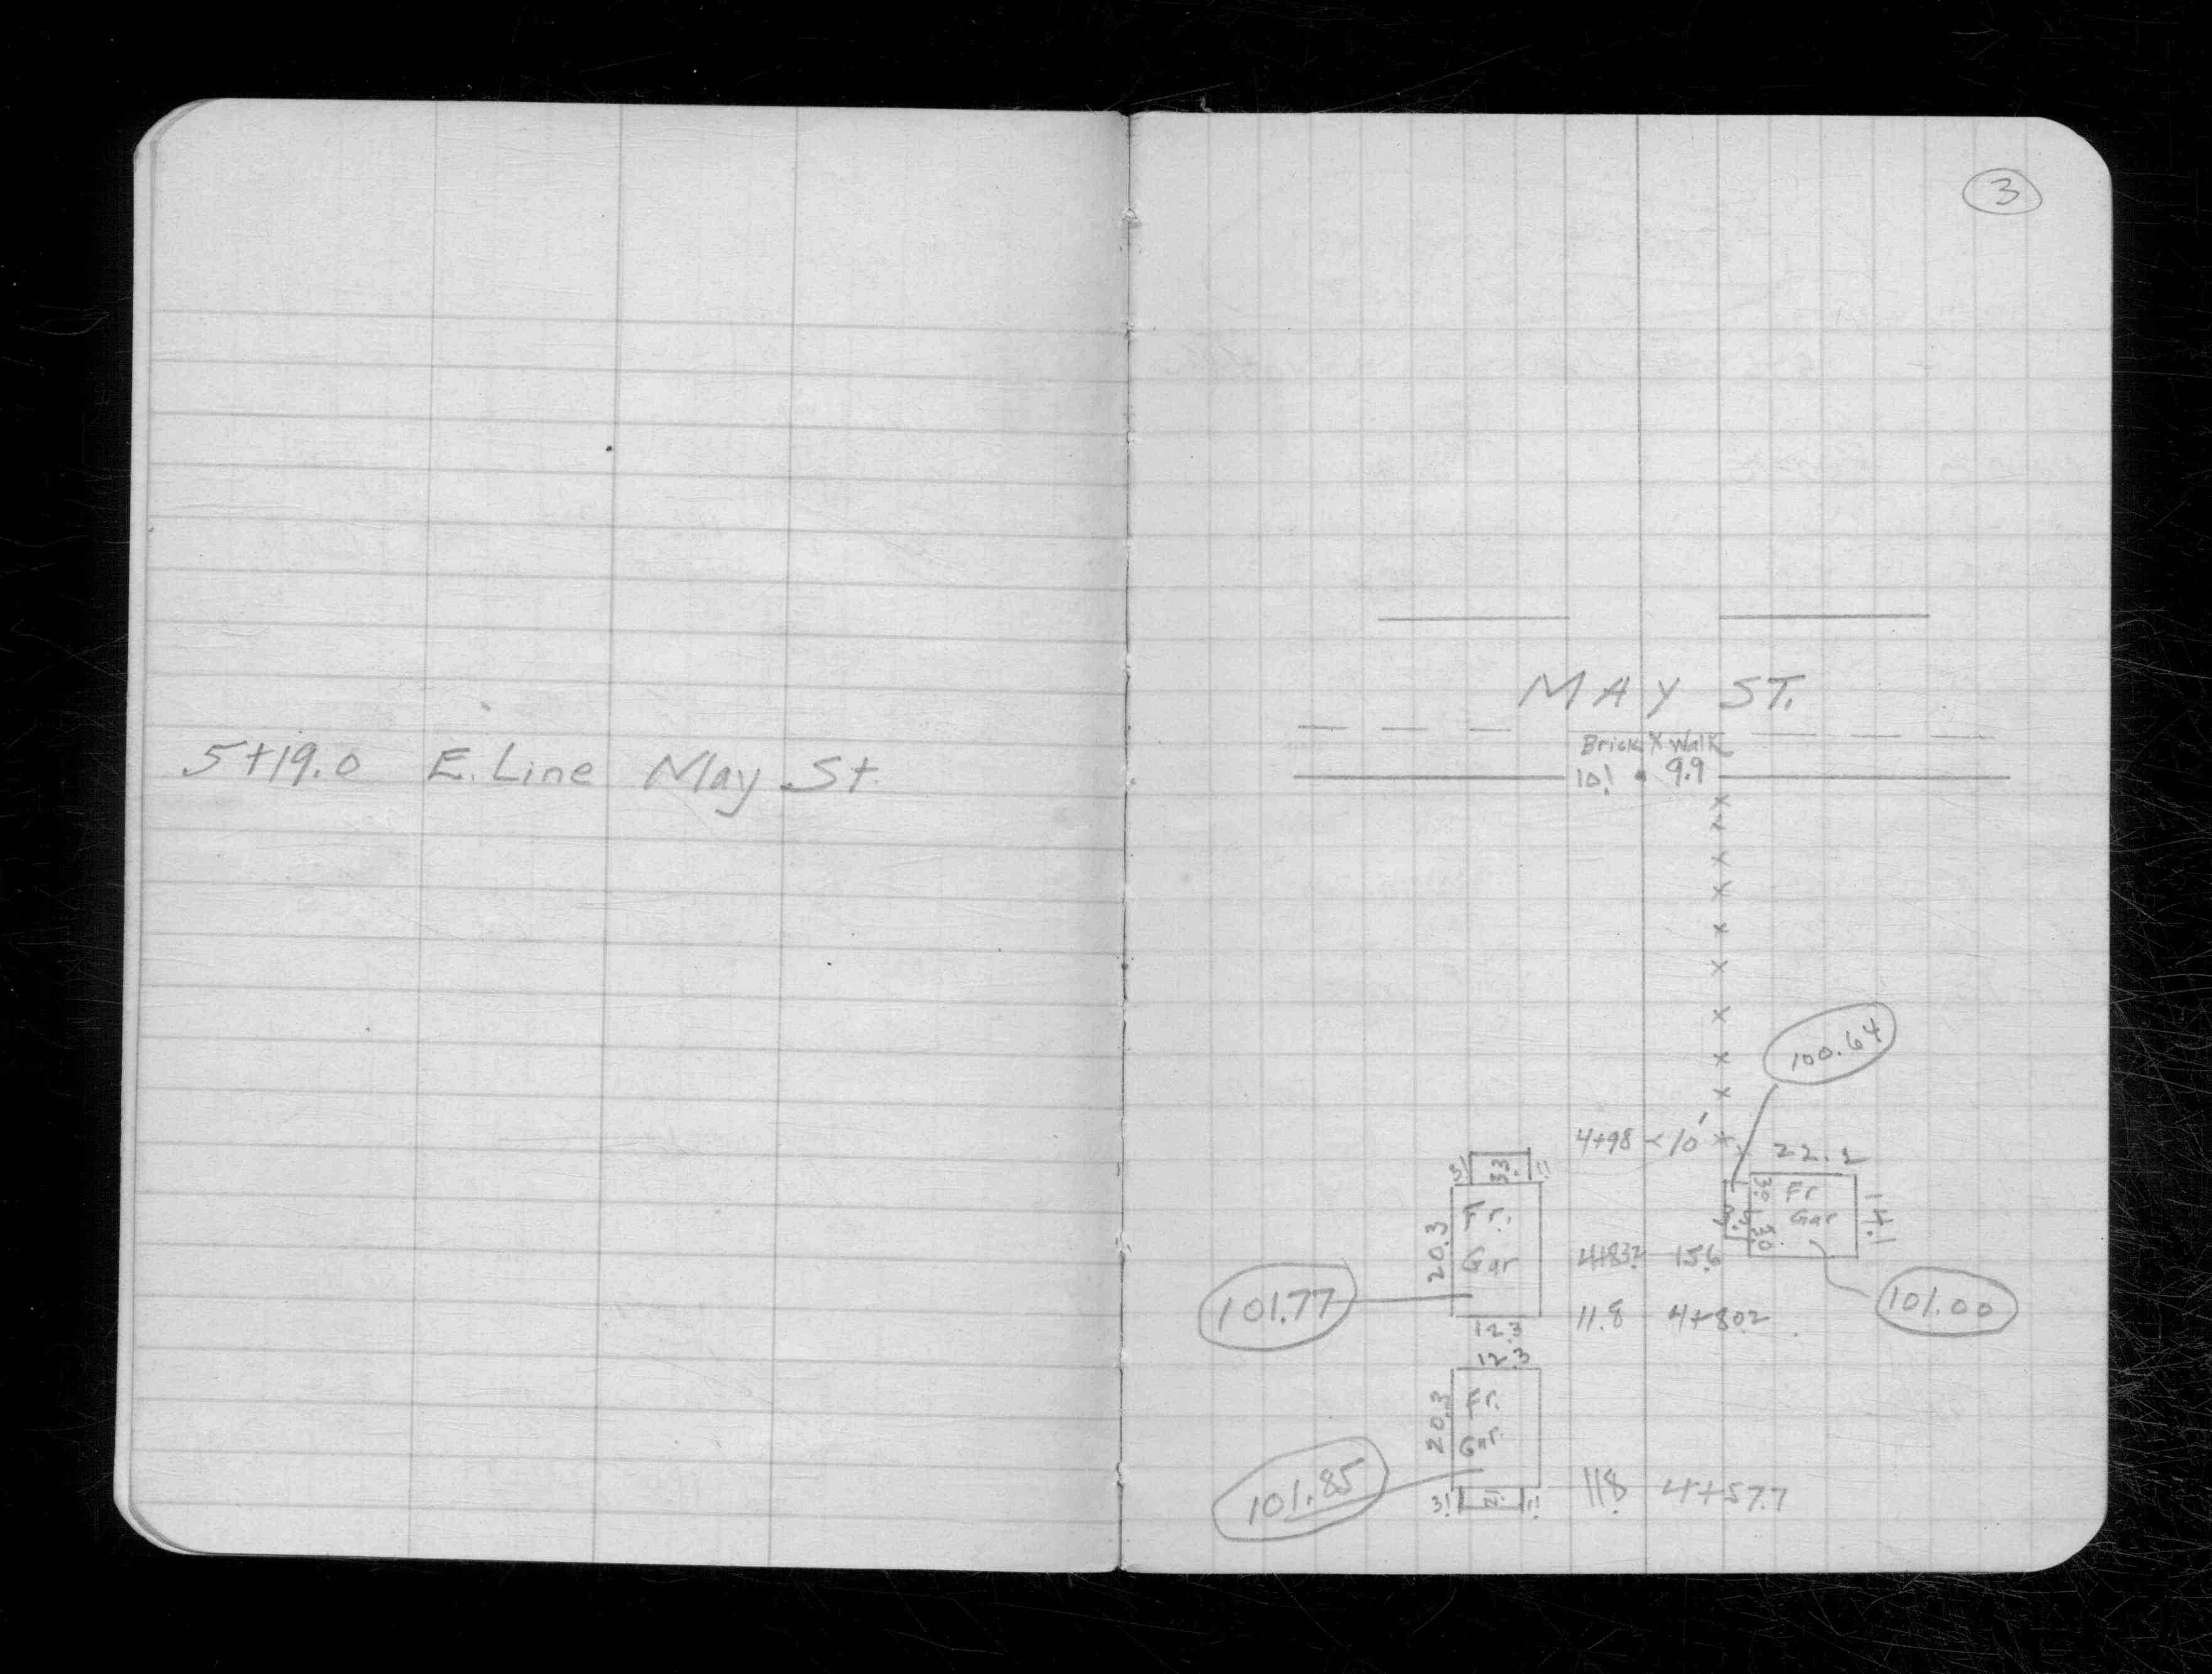 3
5+19.0 E. Line May St.
MAY ST.
Brick X Walk
10! 9.9
100.64
4+98 < 10'
22.2
3! 33. 1!
30. 30
Fr
Gar
14.1
20.3
Fr.
Gar
4+83.2 15.6
101.77
101.00
11.8 4+80.2
12.3
12.3
20.3
Fr.
Gar.
101.85
11.8 4+57.7
3! 1!